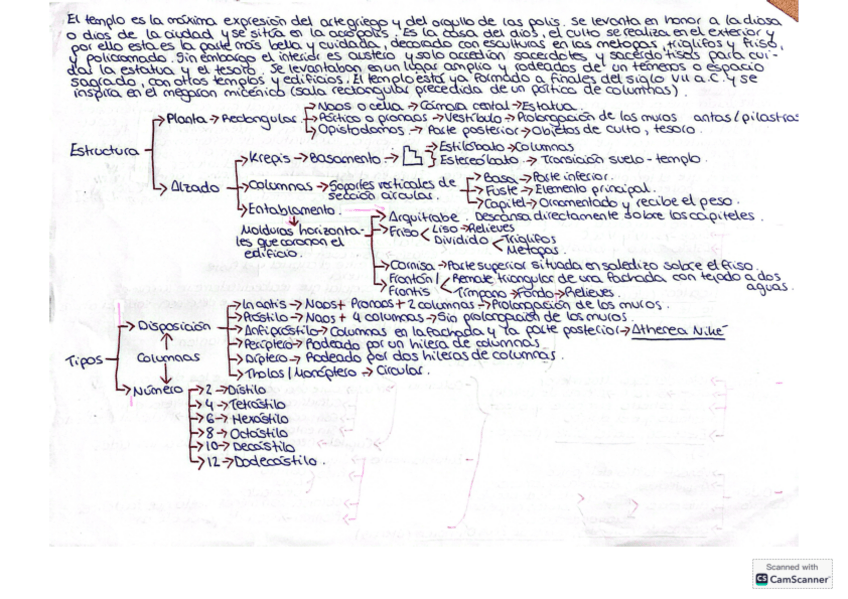 El templo es la máxima expresión del arte griego y del orgullo de las polis. Se levanta en honor a la diosa
o dios de la ciudad y se sitúa en la acrópolis. Es la casa del dios, el culto se realiza en el exterior y
por ello esta es la parte más bella y cuidada, decorado con esculturas en las metopas, triglifos y friso,
y policromado. Sin embargo el interior es austero y solo accedían sacerdotes y sacerdotisas para cui-
dar la estatua y el tesoro. Se levantaban en un lugar amplio y rodeados de un témenos o espacio
sagrado, con otros templos y edificios. El templo está ya formado a finales del siglo VII a.C. y se
inspira en el megaron micénico (sala rectangular precedida de un pórtico de columnas).
Estructura
Planta → Rectangular
Naos o cella → Cámara cental → Estatua.
Pórtico o pronaos → Vestíbulo → Prolongación de los muros antas/pilastras
Opistodamos → Parte posterior → Objetos de culto, tesoro.
Alzado
Krepis → Basamento →
Estilóbato → Columnas
Estereóbato → Transición suelo - templo.
Columnas → Soportes verticales de
sección circular.
Basa → Parte inferior.
Fuste → Elemento principal.
Capitel → Ornamentado y recibe el peso.
Entablamento.
Molduras horizonta-
les que coronan el
edificio.
Arquitrabe. Descansa directamente sobre los capiteles.
Friso
Liso → Relieves
Dividido
Triglifos
Metopas.
Cornisa → Parte superior situada en saledizo sobre el friso.
Frontón /
Frontis
Remate triangular de una fachada con tejado a dos
aguas.
Tímpano → Fondo → Relieves.
Tipos
Columnas
Disposición
In antis → Naos + Pronaos + 2 columnas → Prolongación de los muros.
Próstilo → Naos + 4 columnas → Sin prolongación de los muros.
Anfipróstilo → Columnas en la fachada y la parte posterior → Atherea Niké
Períptero → Rodeado por un hilera de columnas
Díptero → Rodeado por dos hileras de columnas.
Tholos / Monóptero → Circular.
Número
2 → Dístilo
4 → Tetrástilo
6 → Hexástilo
8 → Octóstilo
10 → Decástilo
12 → Dodecástilo.
Scanned with
CS CamScanner